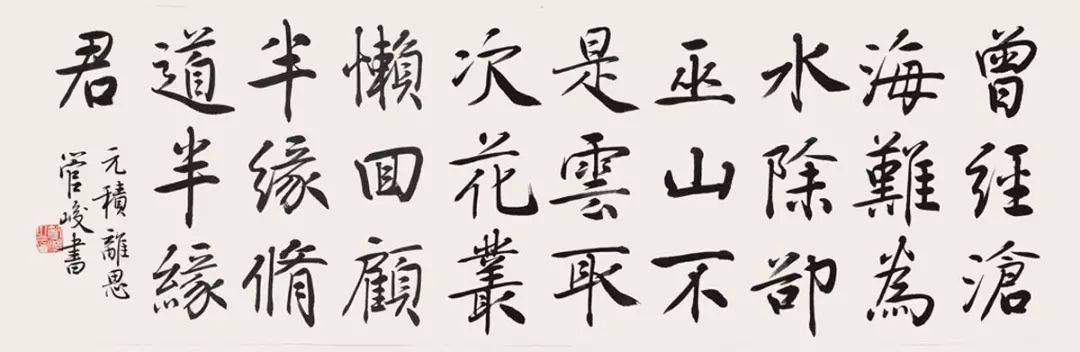 曾經滄
海難為
水除卻
巫山不
是雲取
次花叢
懶回顧
半緣脩
道半緣
君
元積離思
管峻書